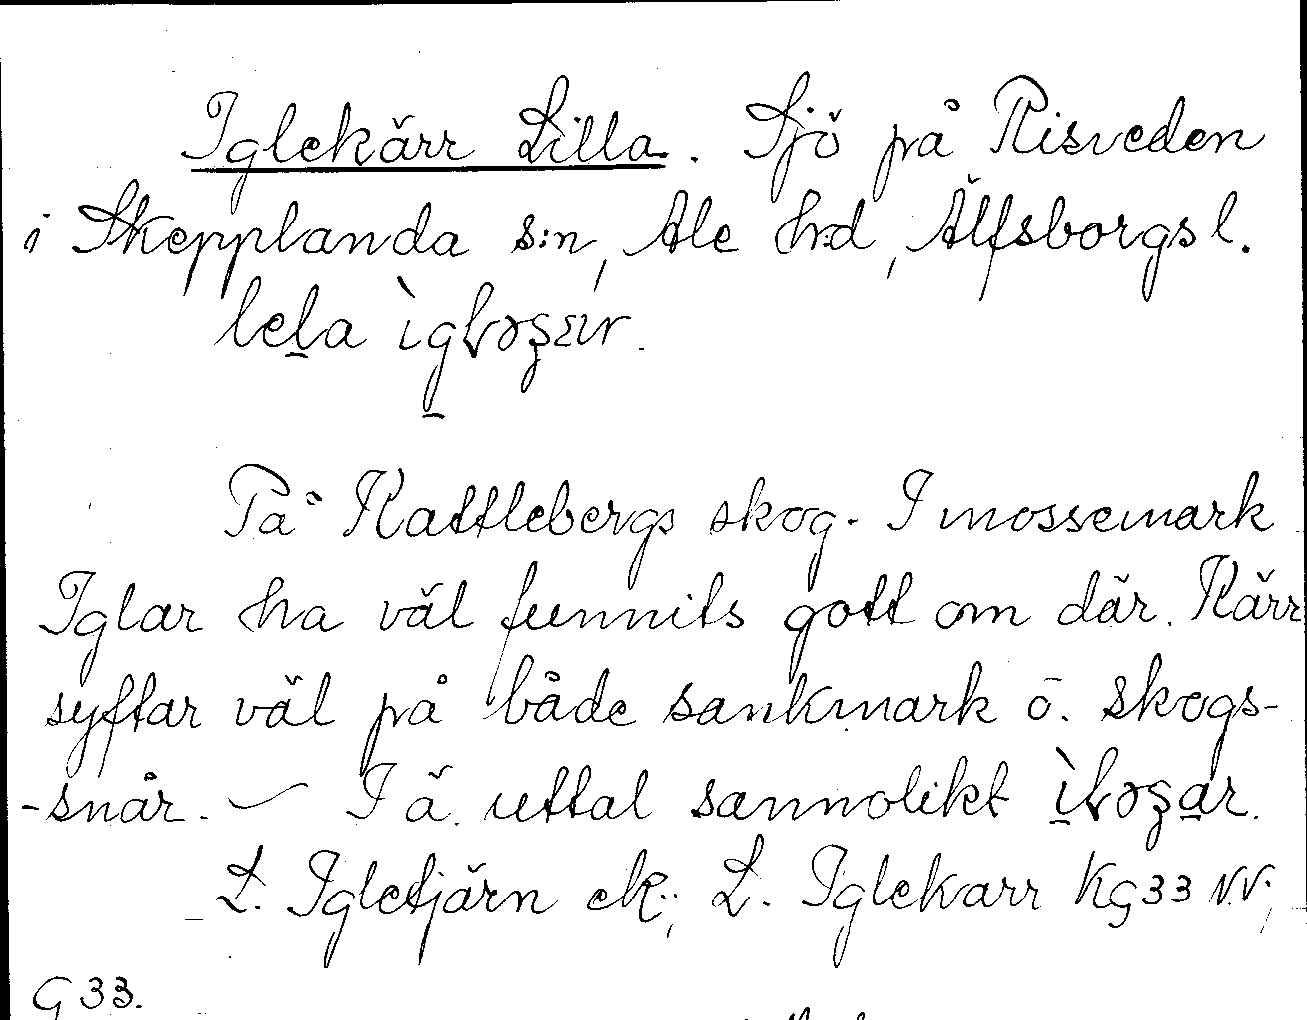 Iglekärr Lilla. Sjö på Risveden
i Skepplanda s:n, Ale h:d, Älfsborgs l.
På Kattlebergs skog. I mossemark
Iglar ha väl funnits gott om där. Kärr
syftar väl på både sankmark o. skogs-
-snår. – I ä. uttal sannolikt
L. Igletjärn ek.; L. Iglekarr Kg33 NV;
G 33.